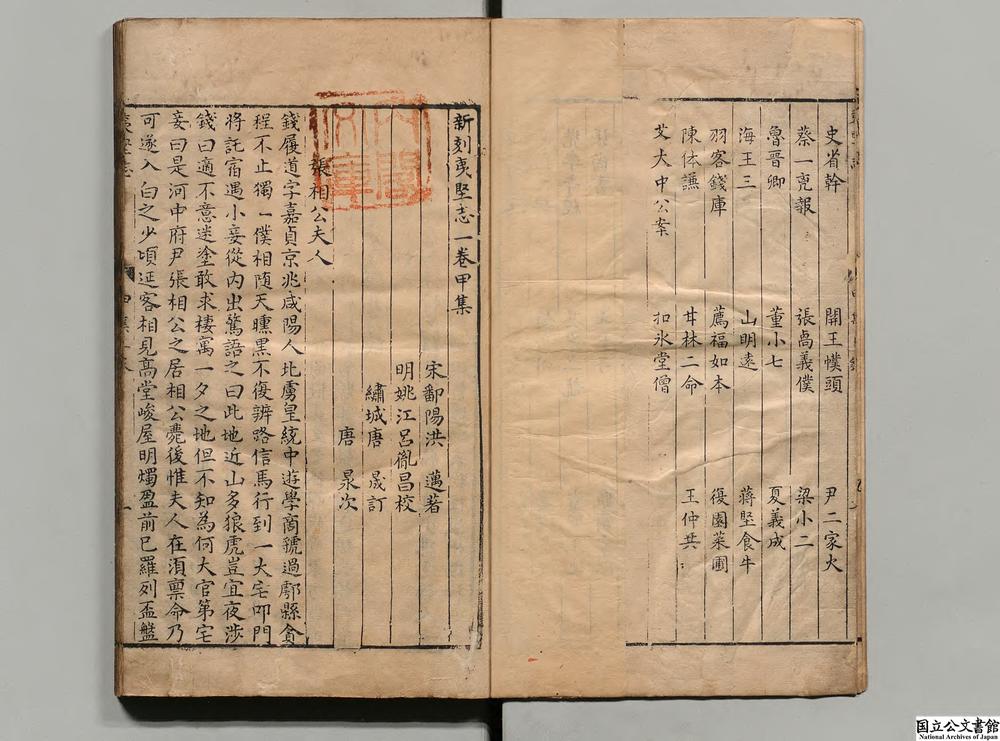 史省幹 開王幞頭 尹二家火
蔡一禿報 張卨義僕 梁小二
魯晉卿 董小七 夏義成
海王三 山明遠 蔣堅食牛
羽客錢庫 薦福如本 復園菜圃
陳体謙 甘林二命 王仲共
艾大中公案 扣氷堂僧
新刻夷堅志一卷甲集
宋鄱陽洪 邁著
明姚江呂胤昌校
繡城唐 晟訂
唐 㫤次
張相公夫人
錢履道字嘉貞京兆咸陽人北虜皇統中遊學商虢過鄠縣貪
程不止獨一僕相随天曛黑不復辨路信馬行到一大宅叩門
將託宿遇小妾從內出驚語之曰此地近山多狼虎豈宜夜涉
錢曰適不意迷塗敢求棲寓一夕之地但不知為何大官第宅
妾曰是河中府尹張相公之居相公薨後惟夫人在湏稟命乃
可遂入白之少頃延客相見髙堂峻屋明燭盈前已羅列盃盤
內閣文庫
国立公文書館
National Archives of Japan